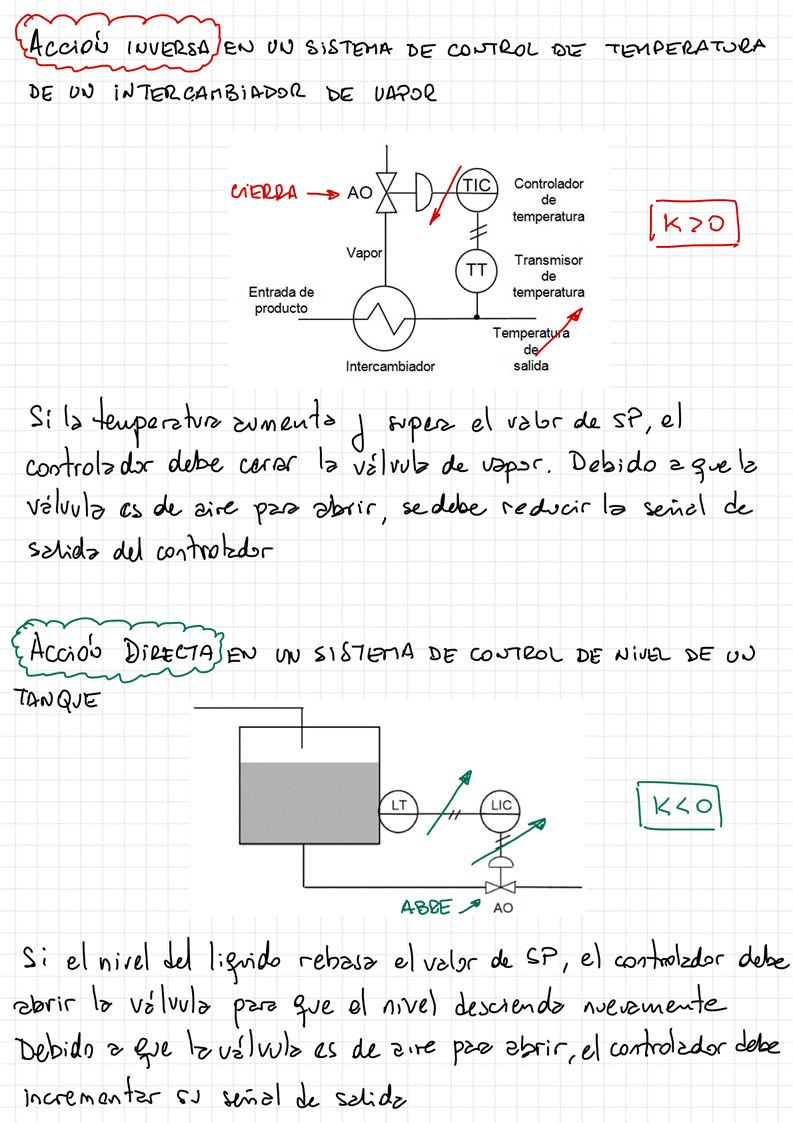 ACCIÓN INVERSA EN UN SISTEMA DE CONTROL DE TEMPERATURA
DE UN INTERCAMBIADOR DE VAPOR
CIERRA → AO
TIC
Controlador
de
temperatura
K > 0
Vapor
TT
Transmisor
de
temperatura
Entrada de
producto
Temperatura
de
salida
Intercambiador
Si la temperatura aumenta y supera el valor de SP, el
controlador debe cerrar la válvula de vapor. Debido a que la
válvula es de aire para abrir, se debe reducir la señal de
salida del controlador
ACCIÓN DIRECTA EN UN SISTEMA DE CONTROL DE NIVEL DE UN
TANQUE
LT
LIC
K < 0
ABRE → AO
Si el nivel del líquido rebasa el valor de SP, el controlador debe
abrir la válvula para que el nivel descienda nuevamente
Debido a que la válvula es de aire para abrir, el controlador debe
incrementar su señal de salida